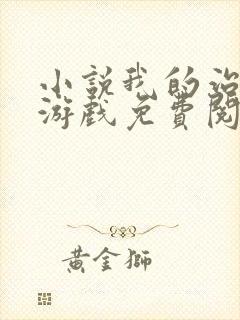 小說我的治
游戲免費閱
黃金獅